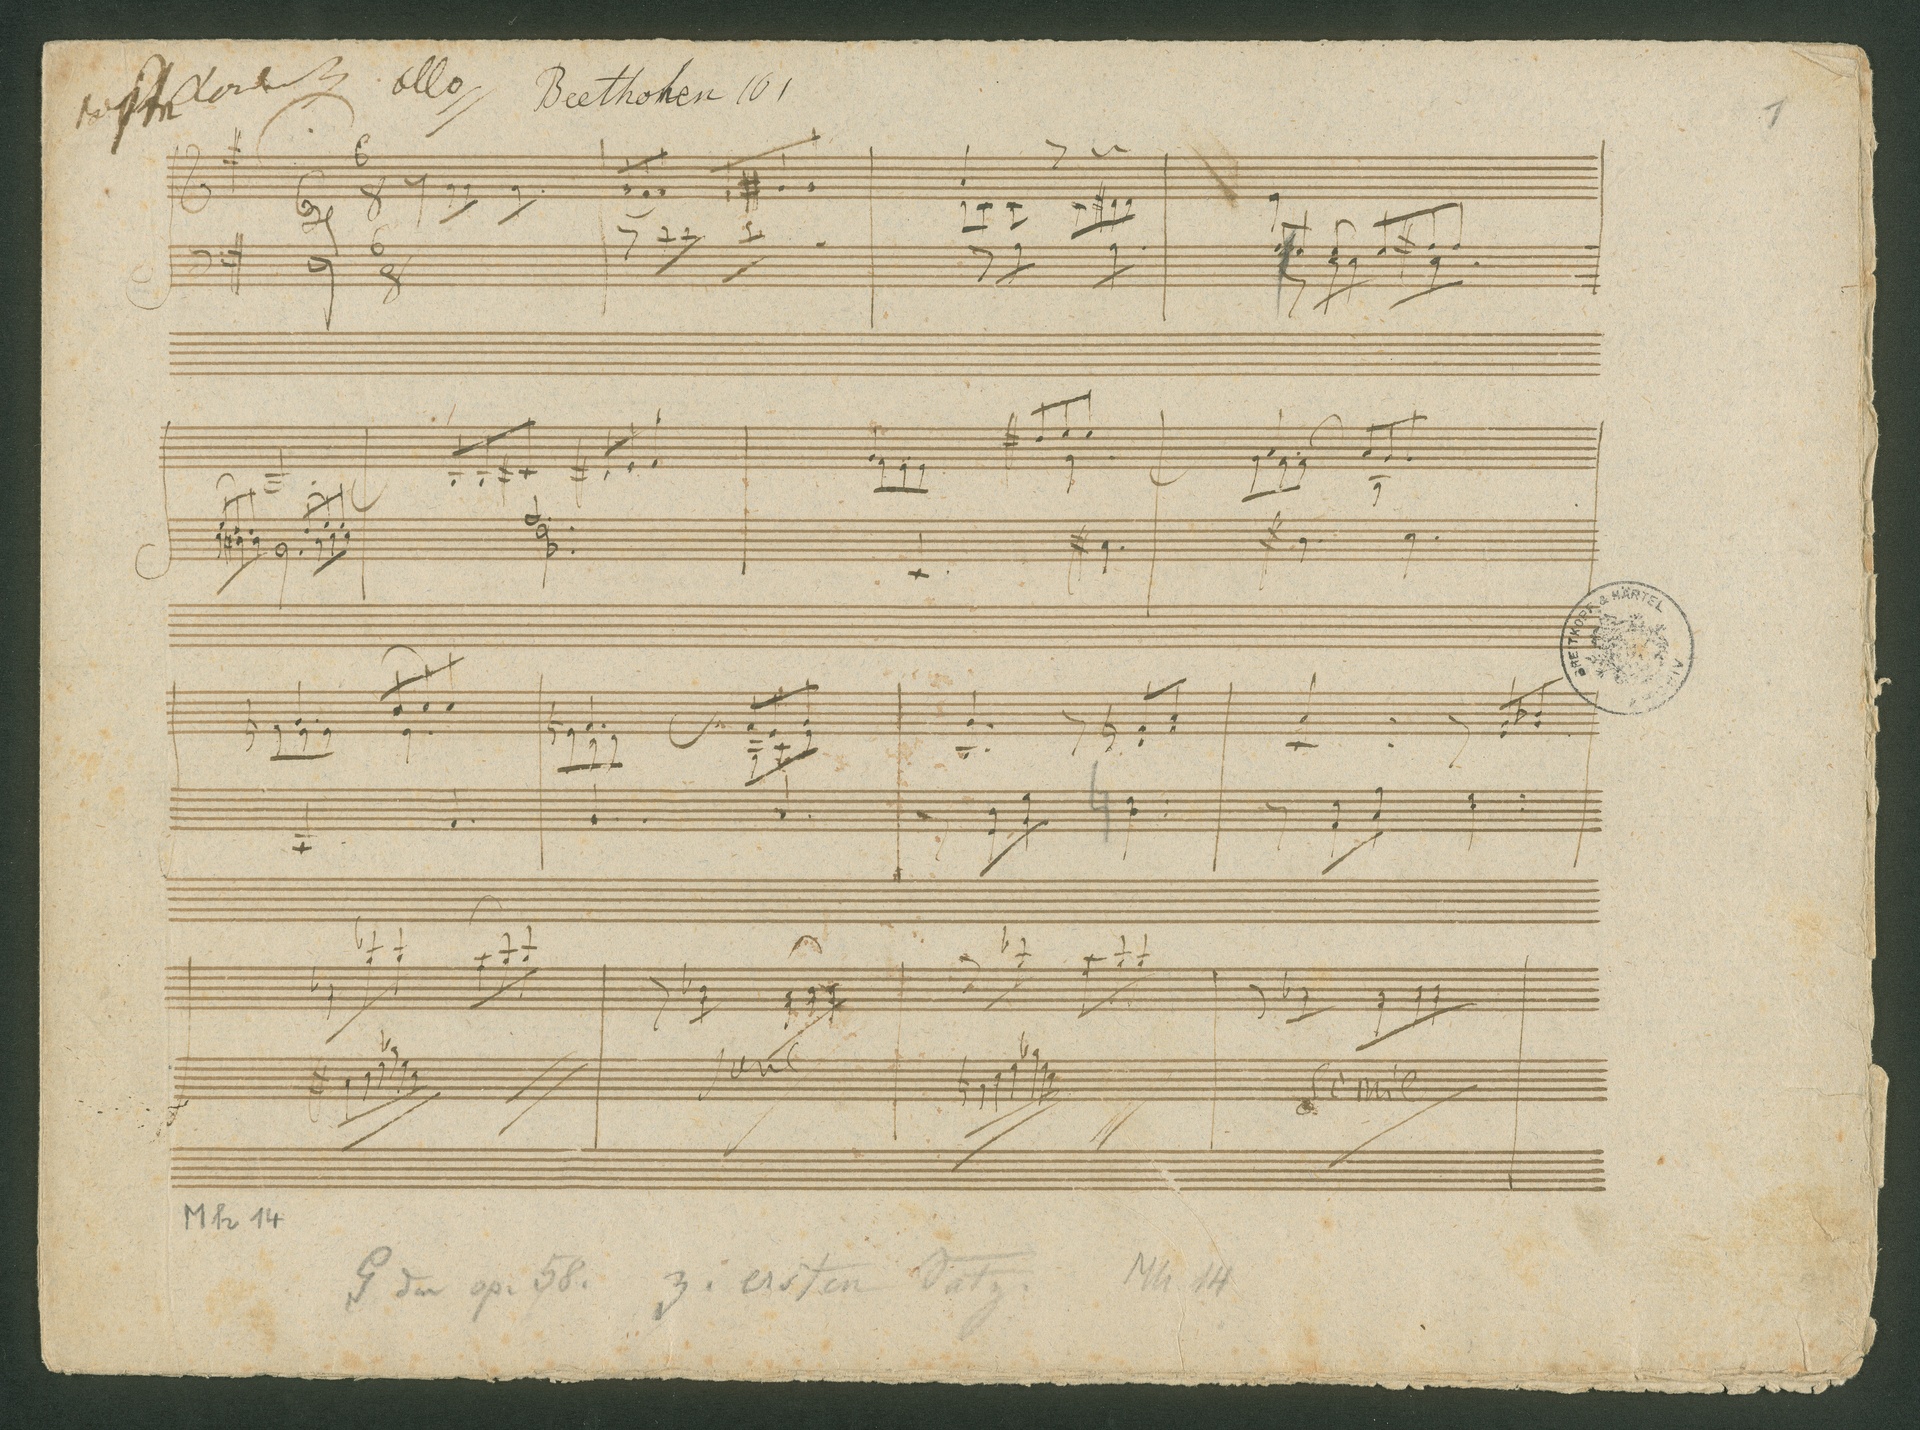 allo Beethoven 101
1
6
8
6
8
BREITKOPF & HÄRTEL
Simile
Mh 14
G dur op. 58. z. ersten Satz. Mh 14